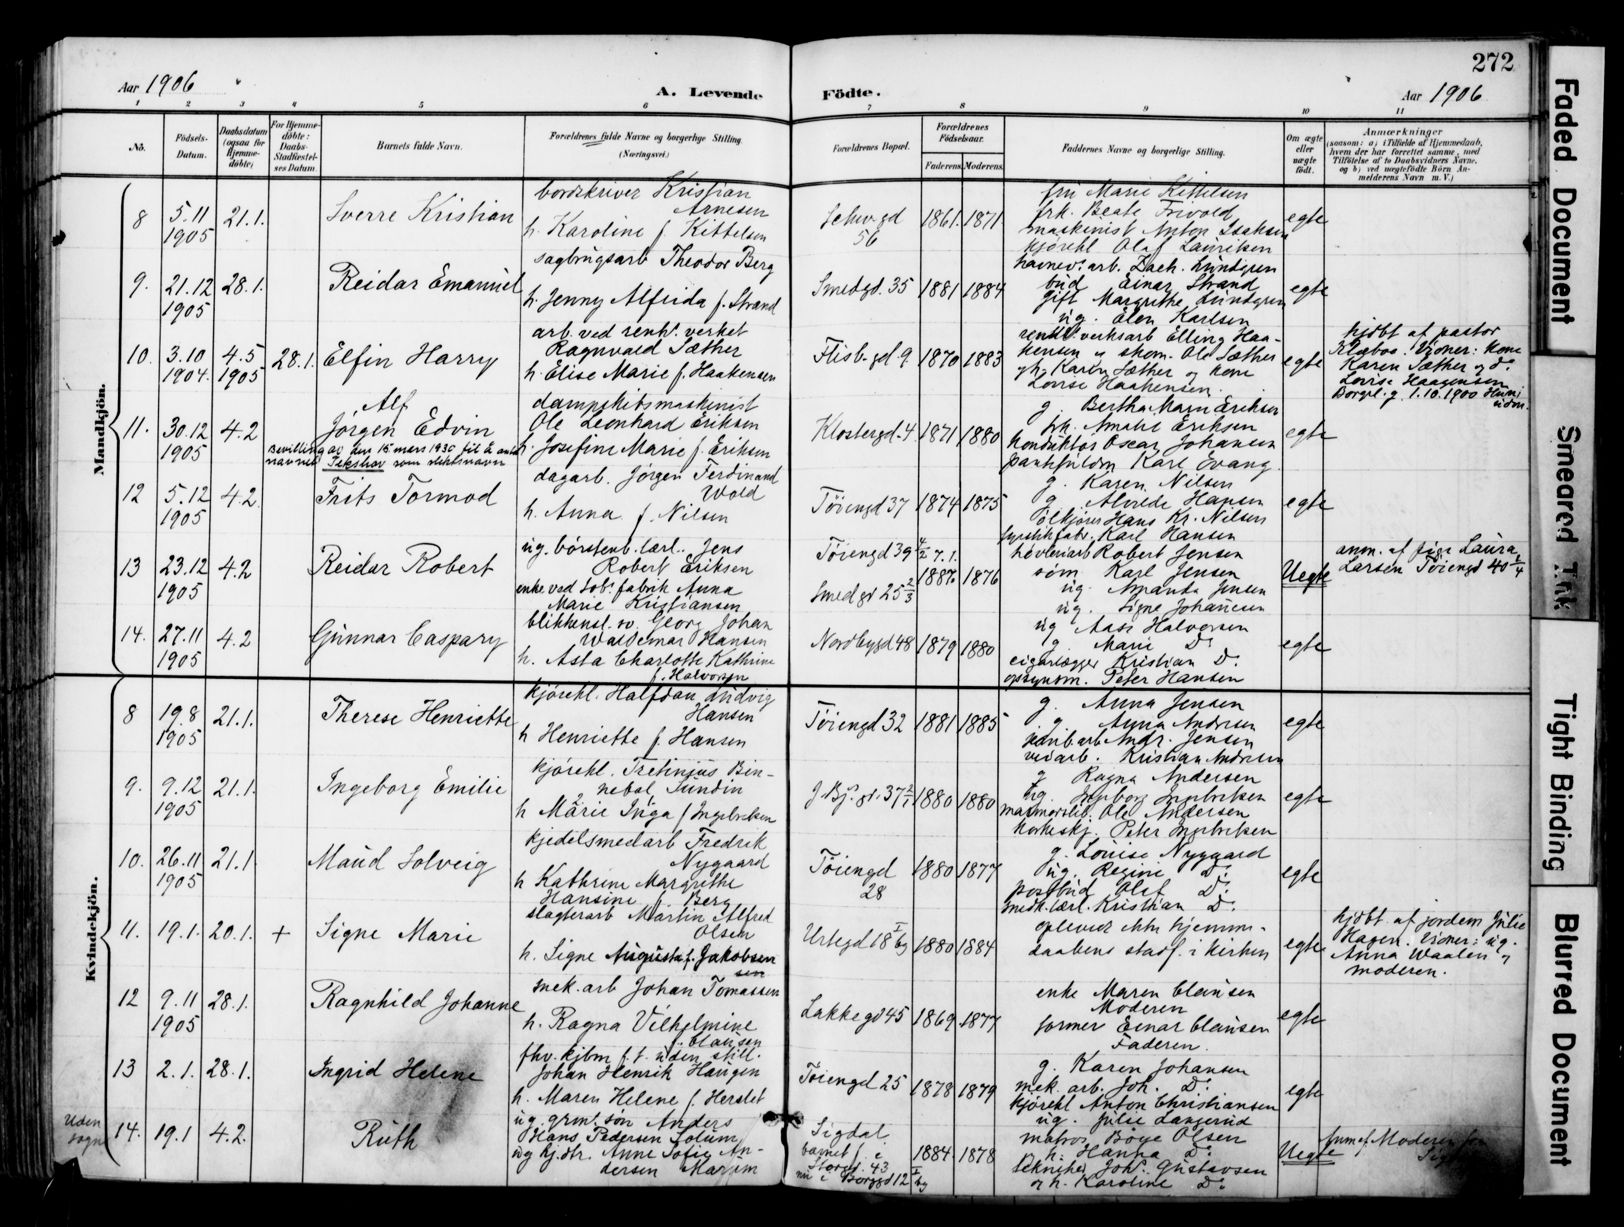 272
Aar 1906
A. Levende
Födte.
Aar 1906
1 2 3 4 5 6 7 8 9 10 11
No.
Fødsels-Datum.
Daabsdatum (ogsaa for Hjemmedøbte)
For Hjemmedøbte: Daabs-Stadfæstelses Datum
Barnets fulde Navn.
Forældrenes fulde Navne og borgerlige Stilling (Næringsvei.)
Forældrenes Bopæl.
Forældrenes Fødselsaar.
Faderens. Moderens.
Faddernes Navne og borgerlige Stilling.
Om ægte eller uægte født.
Anmærkninger
(saasom: a) i Tilfælde af Hjemmedaab, hvem der har forrettet samme, med Tilføielse af to Daabsvidners Navne. og b) ved uægtefødte Børn Anmelderens Navn m. V.)
Mandkjön.
8 5.11 1905 21.1. Sverre Kristian
bordskriver Kristian Arnesen
h. Karoline f. Kittelsen
Schw.gd 56 1861. 1871
fru Marie Kittelsen
frk. Beate Trivold
maskinist Anton Isaksen
kjørekl Olaf Lauritsen
egte
9. 21.12 1905 28.1. Reidar Emanuel
sagbrugsarb Theodor Berg
h. Jenny Alfrida f. Strand
Smedgd. 35 1881 1884
havnev. arb. Zach. Lundgren
bud Einar Strand
gift Margrethe Lundgren
ug. Elen Karlsen
egte
10. 3.10 1904. 4.5 1905 28.1. Elfin Harry
arb. ved renh. verket
Ragnvald Sæther
h. Elise Marie f. Haakensen
Flisb.gd 9 1870 1883
renh. verksarb Elling Haakensen og skom. Ole Sæther
gh. Karen Sæther og kone
Lovise Haakensen.
egte
hjdbt af pastor
Klæboe. Vidner: kone
Karen Sæther og do
Lovise Haagensen
11. 30.12 1905 4.2 Alf
Jørgen Edvin
Bevilling av den 15 mars 1930 til å anta navnet som slektsnavn
dampskibsmaskinist
Ole Leonhard Eriksen
h. Josefine Marie f. Eriksen
Klostergd. 4 1871 1880
g. Bertha Maria Eriksen
frk. Amalie Eriksen
konduktør Oscar Johansen
Karl Evang.
egte
12 5.12 1905 4.2 Frits Tormod
dagarb. Jørgen Ferdinand Wold
h. Anna f. Nilsen
Tøiengd 37 1874 1875
g. Karen Nilsen
g. Alvilde Hansen
ølkjører Hans Kr. Nilsen
Karl Hansen
egte
13 23.12 1905 4.2 Reidar Robert
ug. børstenb. lærl. Jens
Robert Eriksen
enke ved tob. fabrik Anna
Marie Kristiansen
Tøiengd 39
Smedgt 25 2/3 1876
høvleriarb Robert Jensen
søm. Karl Jensen
ug. Amanda Jensen
ug. Signe Johansen
Uegte
anm. af pige Laura
Larsen Tøiengd 40
14. 27.11 1905 4.2 Gunnar Caspary
blikkensl. sv. Georg Johan
Waldemar Hansen
h. Asta Charlotte Kathrine
f. Halvorsen
Nordbygd 48 1879 1880
ug Aase Halvorsen
g. Marie Do
cigarlægger Kristian Do
opsynsm. Peter Hansen
egte
Kvindekjön.
8 19.8 1905 21.1. Therese Henriette
kjørekl. Halfdan Ludvig
Hansen
h Henriette f. Hansen
Tøiengd 32 1881 1885
g. Anna Jensen
g. Anna Andersen
Andr. Jensen
Kristian Andersen
egte
9. 9.12 1905 21.1. Ingeborg Emilie
kjørekl. Sundin
h Marie Inga f Ingebriktsen
1880 1880
g Ragna Andersen
ug. Ingeborg Ingebriktsen
Ole Andersen
Peter Ingebriktsen
egte
10. 26.11 1905 21.1 Maud Solveig
kjedelsmedarb Fredrik
Nygaard
h Kathrine Margrethe
Hansine f. Berg
Tøiengd 28 1880 1877
g. Louise Nygaard
ug. Regine Do
postbud Olaf Do
smedk. lærl. Kristian Do
egte
11. 19.1. 20.1. + Signe Marie
slagterarb Martin Alfred
Olsen
h. Signe Augusta f. Jakobsen
Urtegd 18 1880 1884
oplevede ikke hjemme-
daabens stadf. i kirken
egte
hjdbt. af jordem Julie
Hagen. Vidner: ug.
Anna Waalen og
moderen.
12 9.11 1905 28.1. Ragnhild Johanne
mek. arb Johan Tomassen
h. Ragna Vilhelmine
f. Clausen
Lakkegd 45 1869 1877
enke Maren Clausen
Moderen
former Einar Clausen
Faderen.
egte
13 2.1. 28.1. Ingrid Helene
fhv. kjbm f. t. uden still.
Johan Henrik Haugen
h. Maren Helene f. Herslet
Tøiengd 25 1878 1879
g. Karen Johansen
mek. arb. Joh. Do
kjørekl Anton Christiansen
ug. Julie Langerud
egte
Uden sogns 14. 19.1 4.2. Ruth
ug. grm. søn Anders
Hans Pedersen Solum
og Anne Sofie Andersen
Sigdal
barnet f. i
Storgd. 43
nu i Borggd 12 1884 1878
matros Boye Olsen
h. Hanna Do
tekniker Joh. Gustavsen
og h. Karoline Do
Uegte
anm af Moderen
Faded Document
Smeared Ink
Tight Binding
Blurred Document